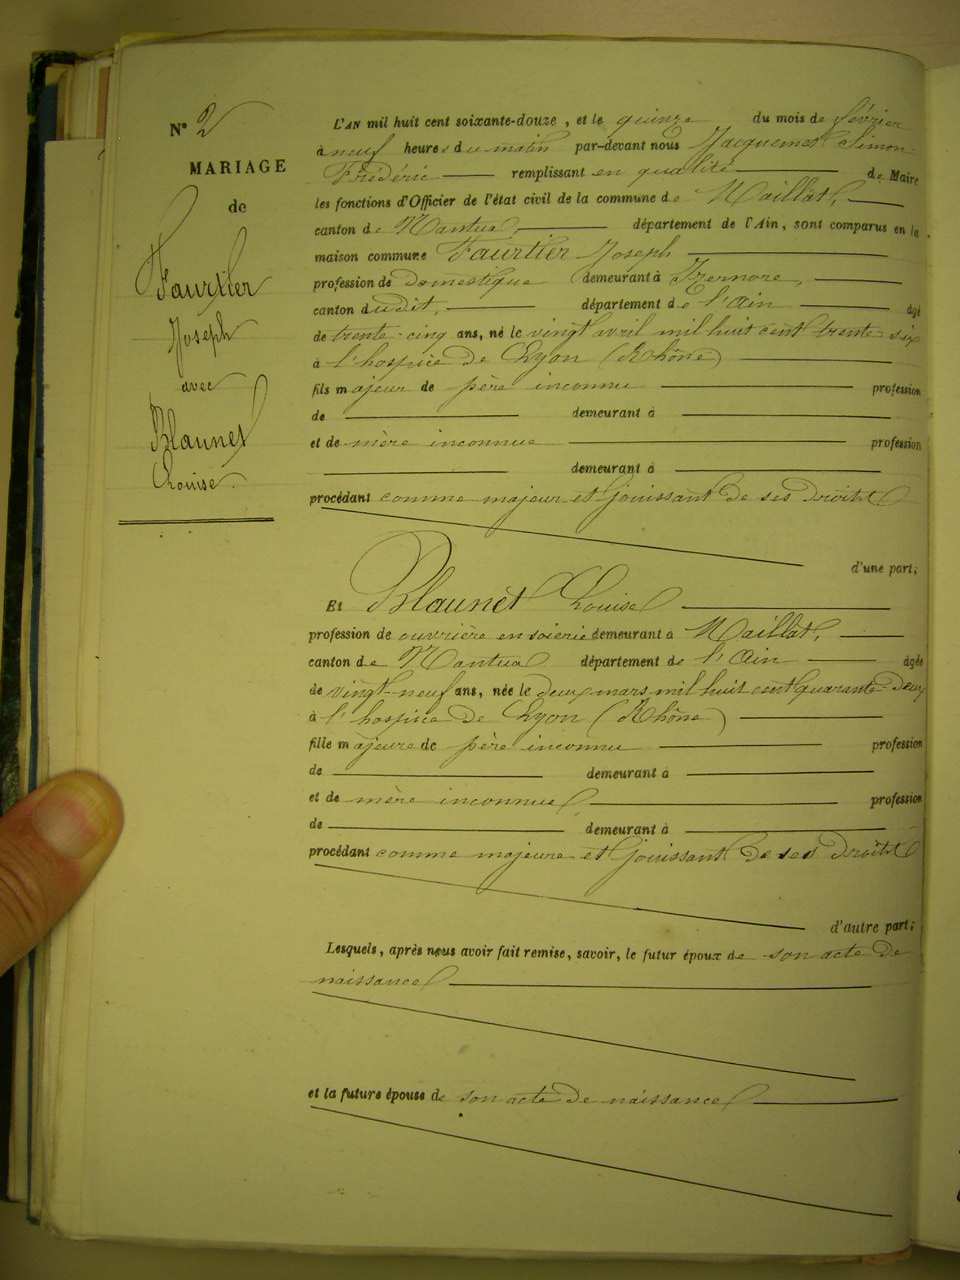 N° 2
MARIAGE
de
Faurtier
Joseph
avec
Blaunet
Louise.
L'AN mil huit cent soixante-douze, et le quinze du mois de février
à neuf heures du matin par-devant nous Jacquemet Simon-
Frédéric remplissant en qualité de Maire
les fonctions d'Officier de l'état civil de la commune de Maillat,
canton de Nantua, département de l'Ain, sont comparus en la
maison commune Faurtier Joseph
profession de domestique demeurant à Izernore,
canton dudit, département de l'Ain âgé
de trente-cinq ans, né le vingt avril mil huit cent trente-six
à l'hospice de Lyon (Rhône)
fils majeur de père inconnu profession
de demeurant à
et de mère inconnue profession
demeurant à
procédant comme majeur et jouissant de ses droits
d'une part;
Et Blaunet Louise
profession de ouvrière en soierie demeurant à Maillat,
canton de Nantua département de l'Ain âgée
de vingt-neuf ans, née le deux mars mil huit cent quarante-deux
à l'hospice de Lyon (Rhône)
fille majeure de père inconnu profession
de demeurant à
et de mère inconnue profession
de demeurant à
procédant comme majeure et jouissant de ses droits
d'autre part;
Lesquels, après nous avoir fait remise, savoir, le futur époux de son acte de
naissance
et la future épouse de son acte de naissance